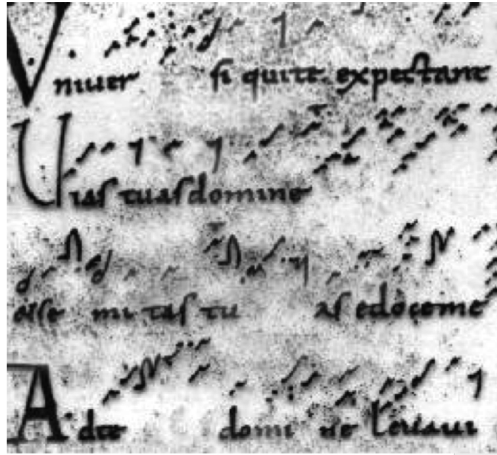 Vniuer si qui te expectant
Vias tuas domine
mi tas tu as edoce me
Ad te domi ne leuaui